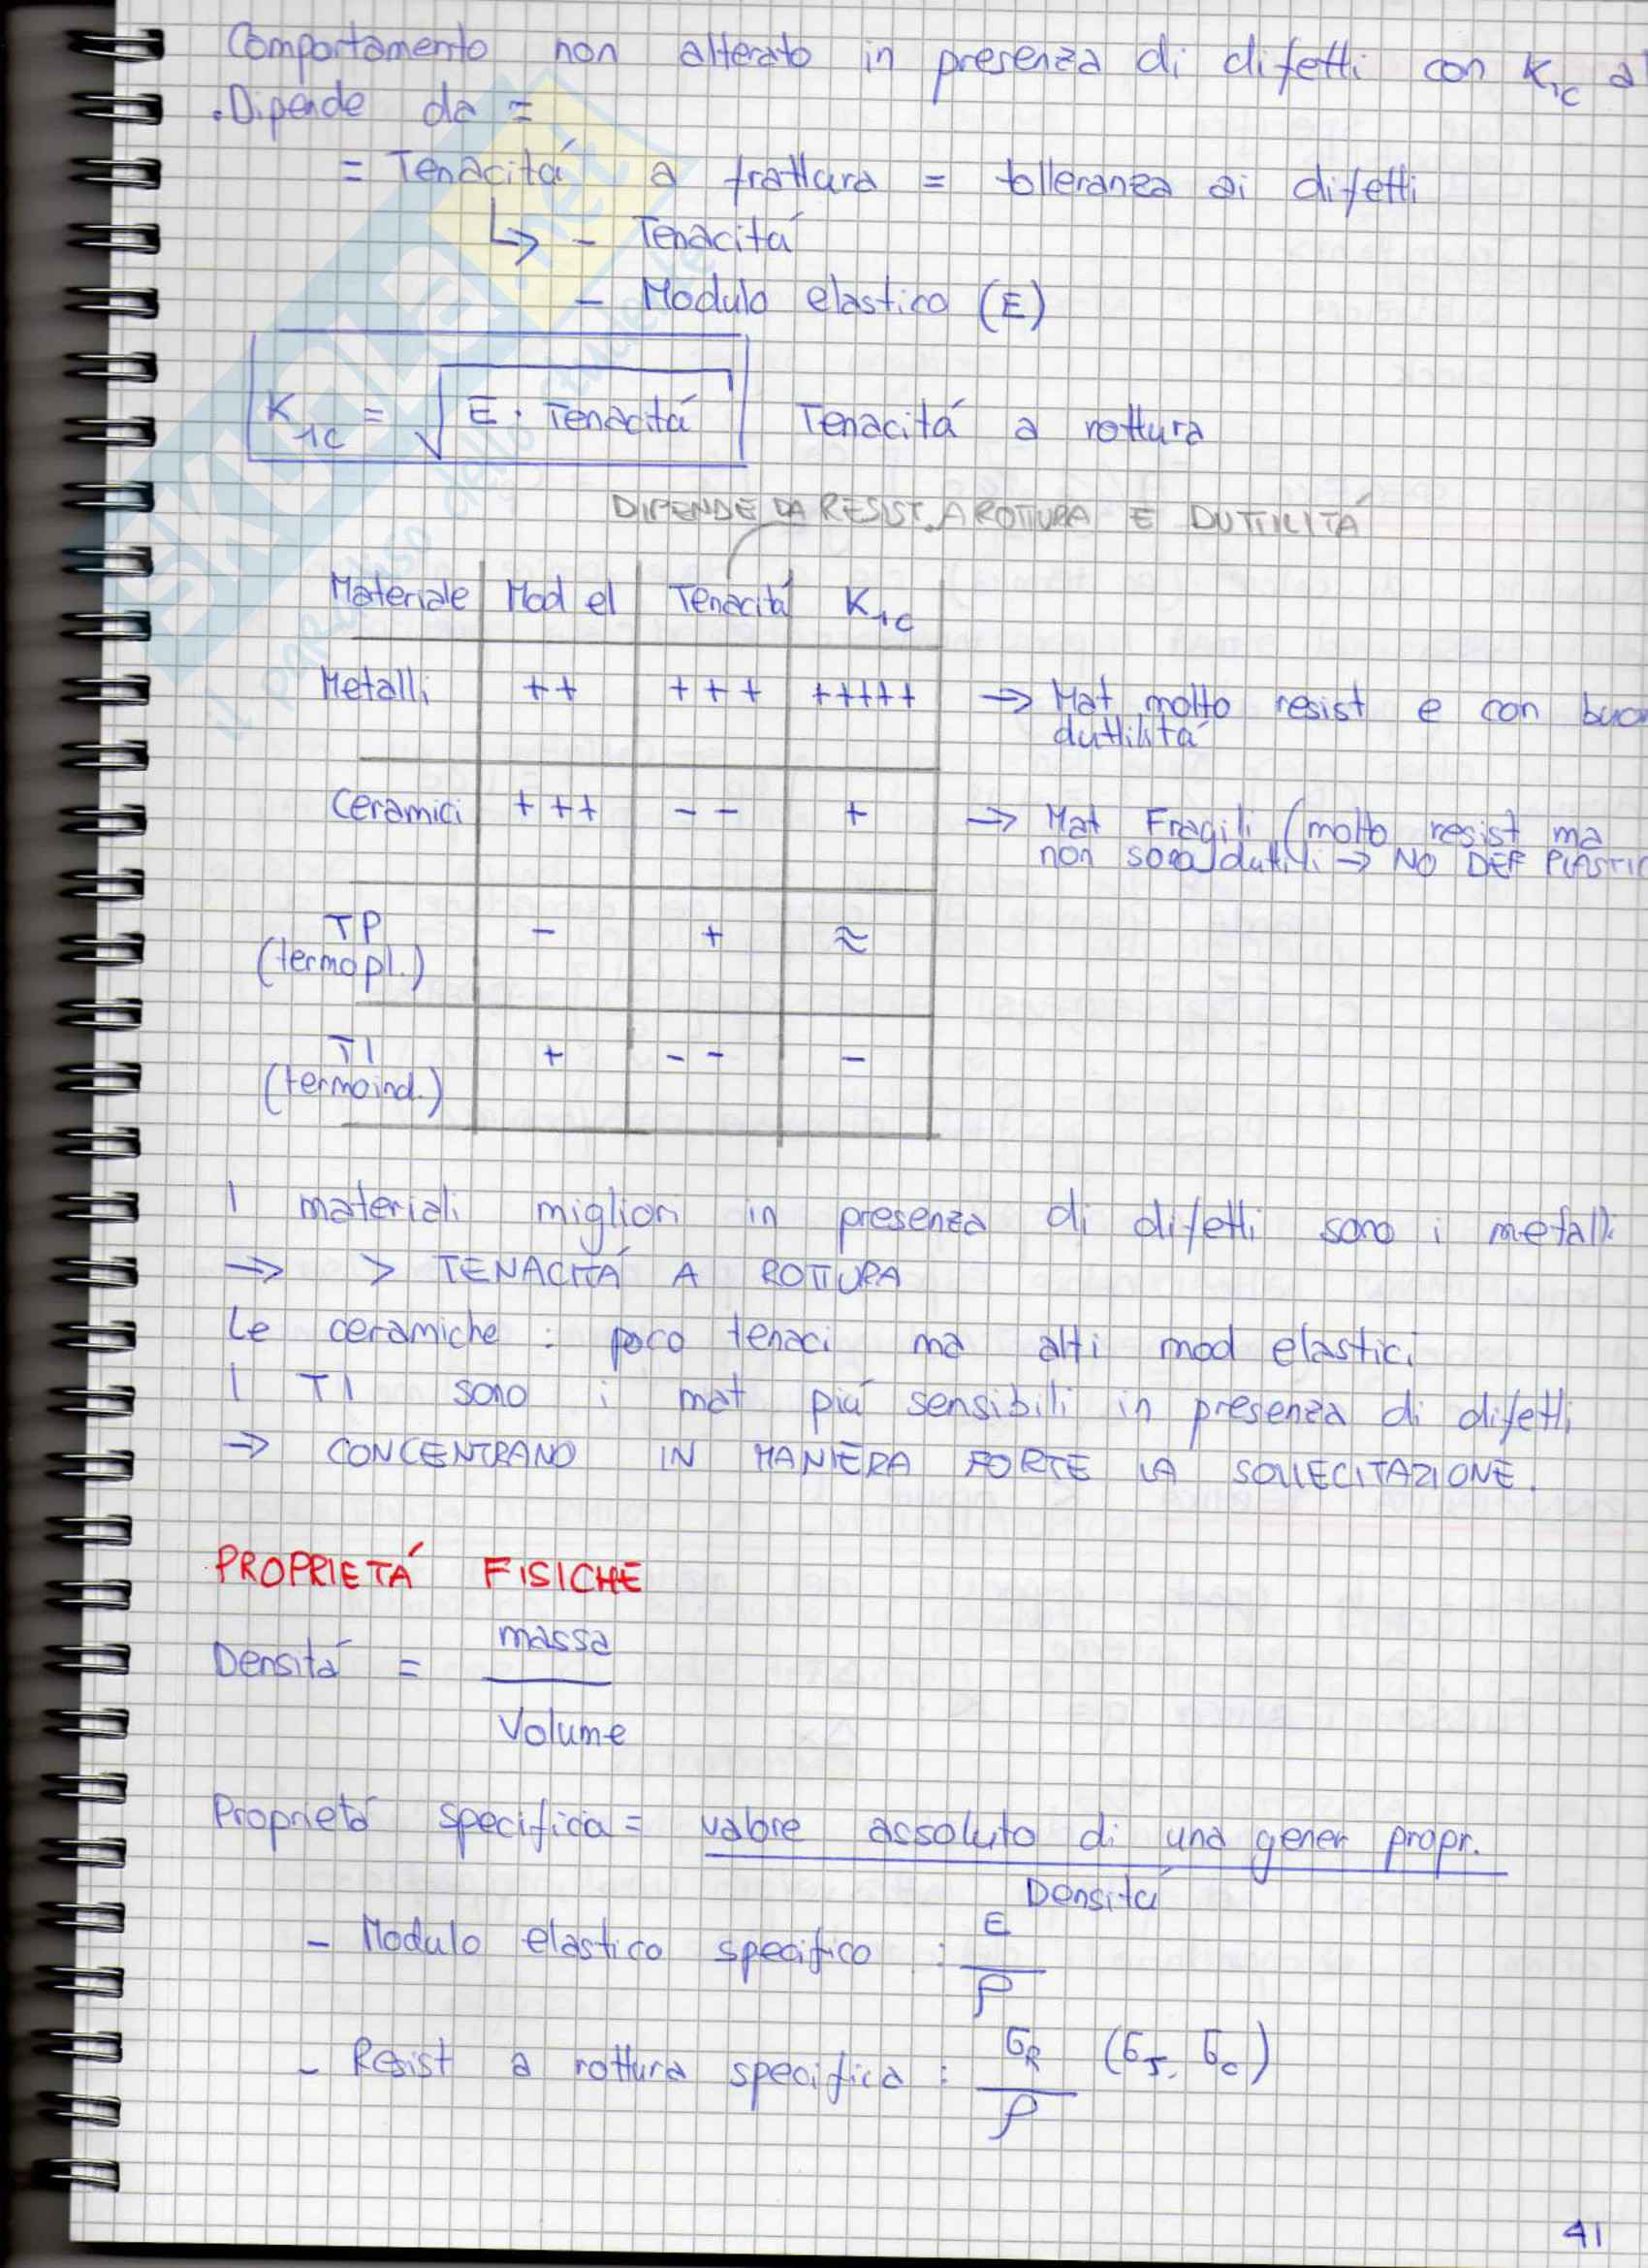 Comportamento non alterato in presenza di difetti con K1C al
.Dipende da =
= Tenacitá a frattura = tolleranza ai difetti
↳ - Tenacitá
- Modulo elastico (E)
K1C = √E · Tenacitá Tenacitá a rottura
DIPENDE DA RESIST. A ROTTURA E DUTTILITÁ
Materiale Mod el Tenacitá K1C
Metalli ++ +++ +++++ => Mat molto resist e con buon
duttilitá
Ceramici +++ -- + => Mat Fragili (molto resist ma
non sono duttili → NO DEF PLASTIC
TP - + ≈
(termopl.)
TI + -- -
(termoind.)
I materiali migliori in presenza di difetti sono i metalli
=> > TENACITÁ A ROTTURA
Le ceramiche : poco tenaci ma alti mod elastici
I TI sono i mat piú sensibili in presenza di difetti
=> CONCENTRANO IN MANIERA FORTE LA SOLLECITAZIONE.
PROPRIETÁ FISICHE
massa
Densitá =
Volume
Proprietá specifica = valore assoluto di una gener propr.
Densitá
- Modulo elastico specifico : E
ρ
- Resist a rottura specifica : σR (σs, σc)
ρ
41
SKUOLA.net
il paradiso dello studente